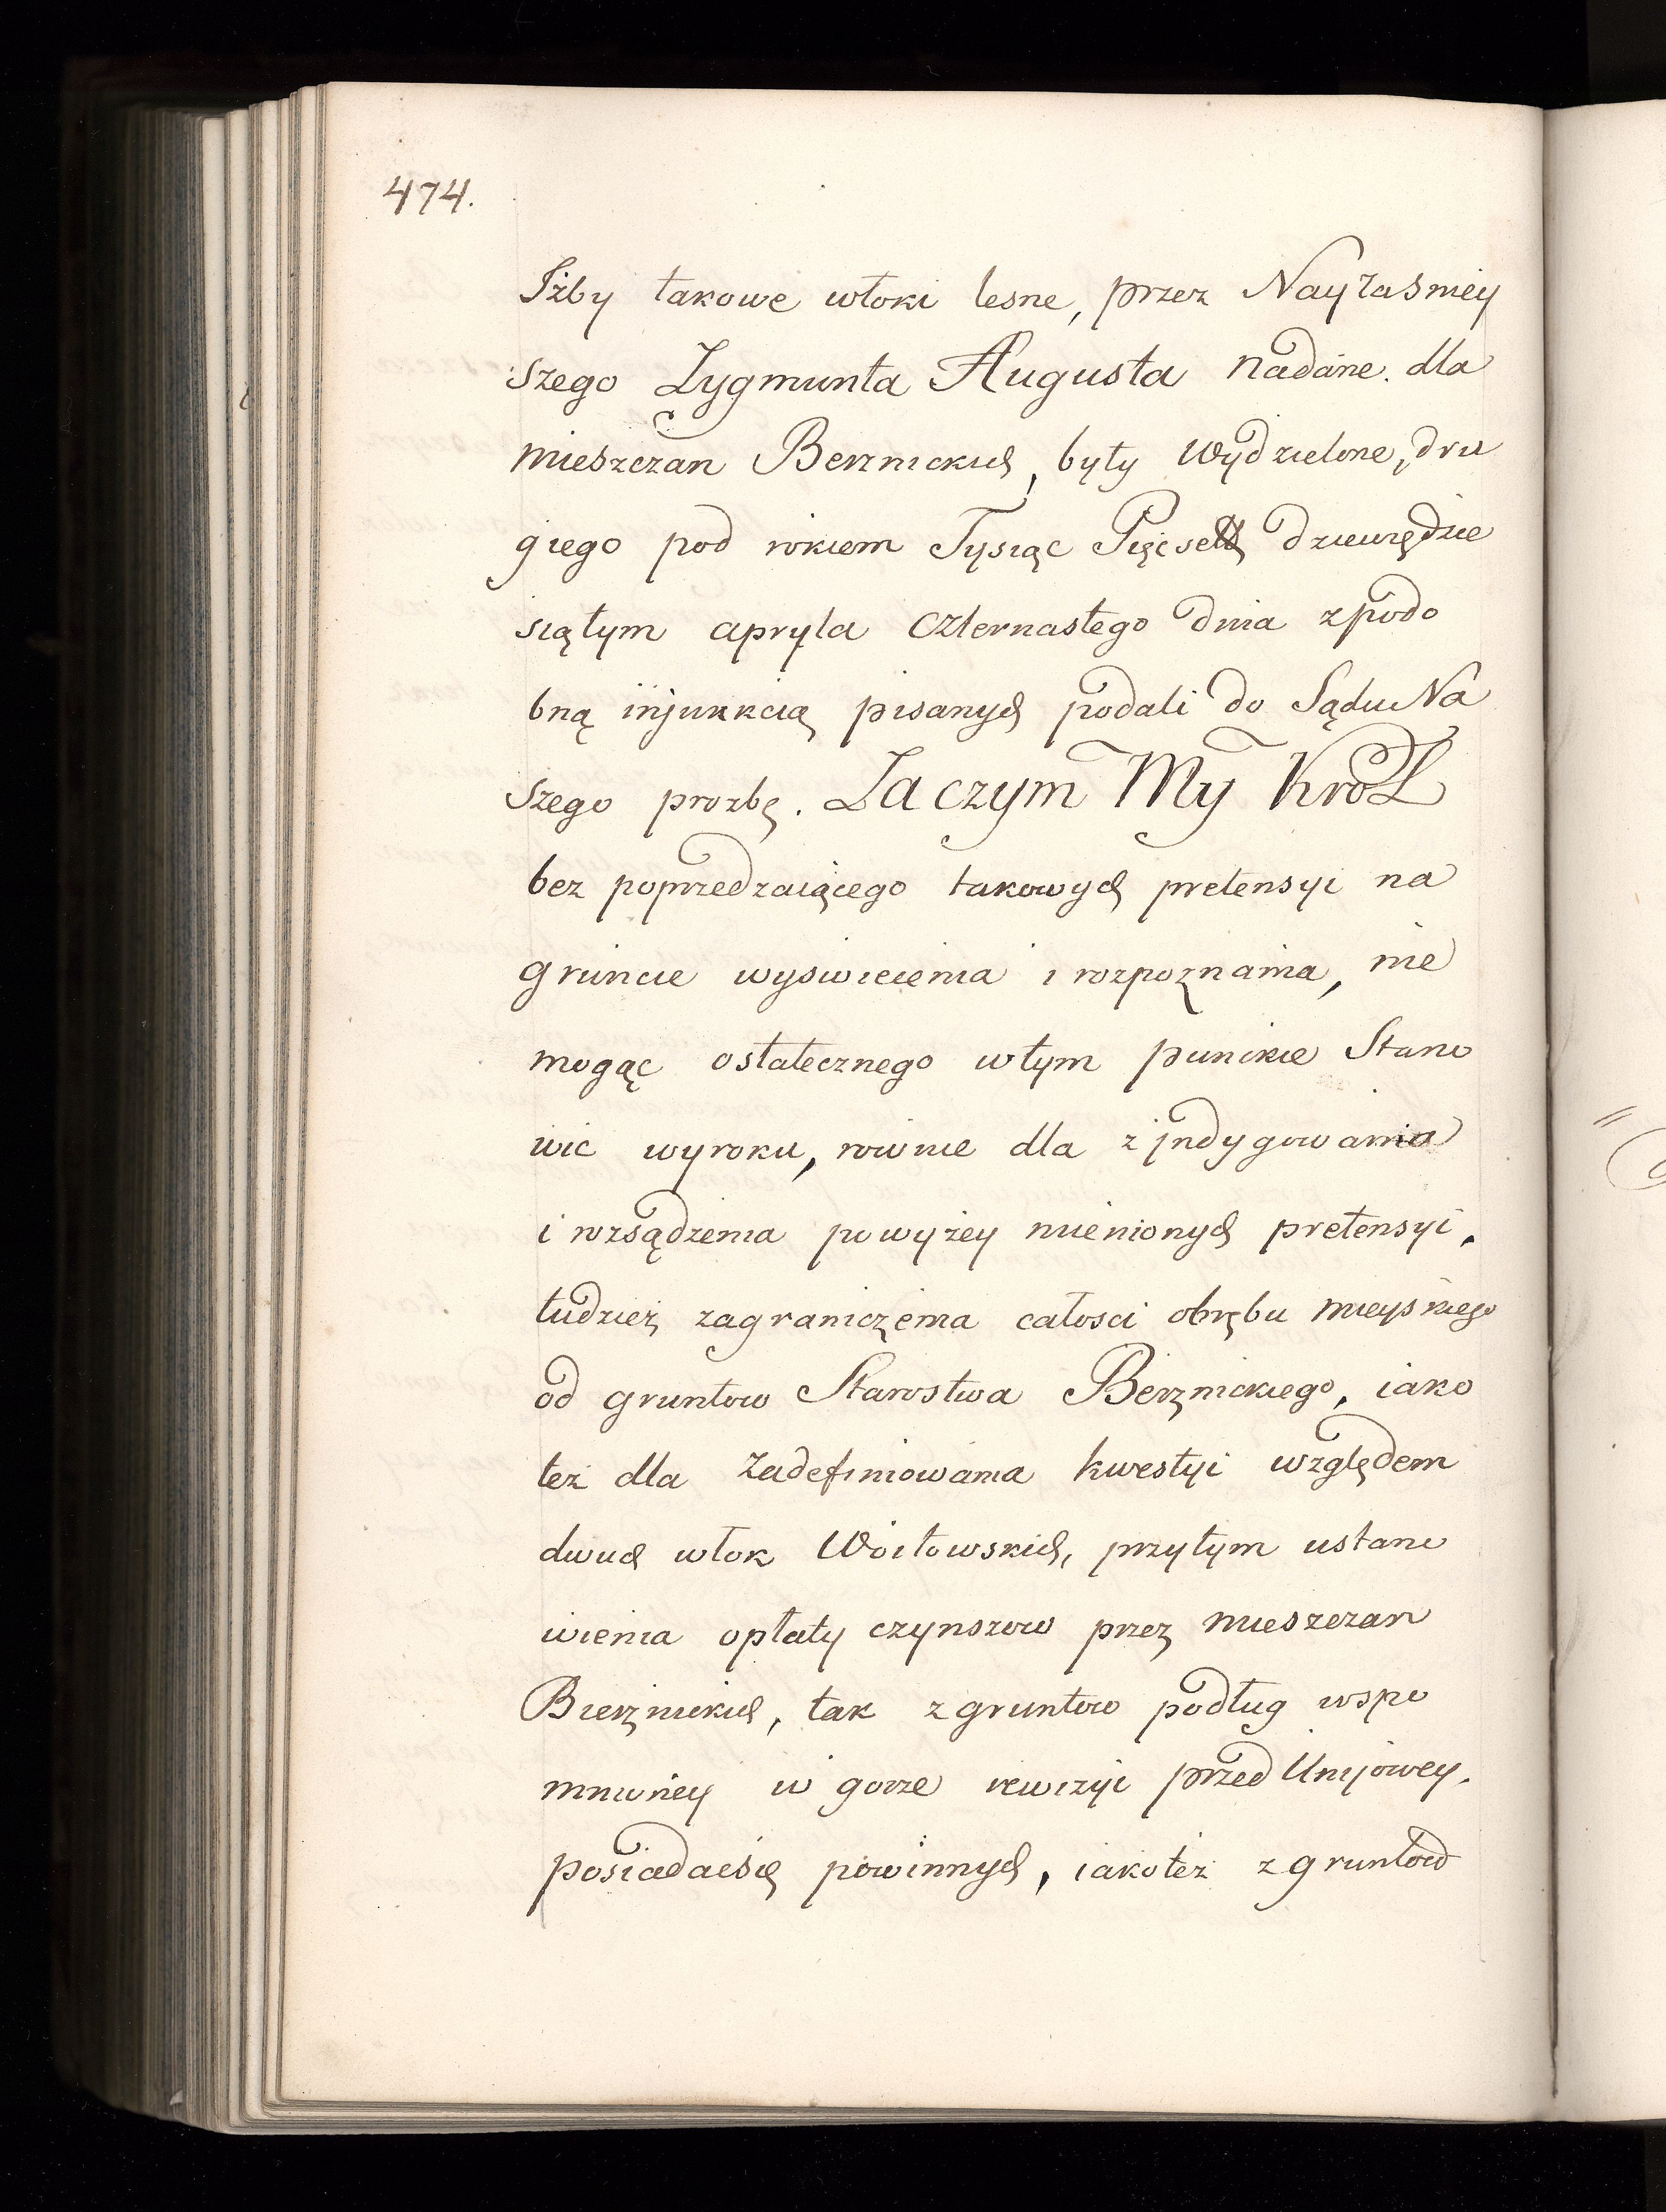 474.
Iżby takowe włoki lesne, przez Nayiasniey
szego Zygmunta Augusta nadane. dla
mieszczan Berznickich, były wydzielone, dru
giego pod rokiem Tysiąc Pięcset dziewiędzie
siątym apryla czternastego dnia z podo
bną injunkcią pisanych podali do Sądu Na
szego prozbę. Zaczym My Krol
bez poprzedzaiącego takowych pretensyi na
gruncie wyswiecenia i rozpoznania, nie
mogąc ostatecznego w tym punkcie Stano
wic wyroku, rownie dla zjndygowania
i rozsądzenia powyżey mienionych pretensyi,
tudzież zagraniczenia całosci obrębu mieyskiego
od gruntow Starostwa Berznickiego, iako
też dla zadefiniowania kwestyi względem
dwuch włok Woitowskich, przytym ustano
wienia opłaty czynszow przez mieszczan
Bierznickich, tak z gruntow podług wspo
mnioney w gorze rewizyi przed Unijowey,
posiadać się powinnych, iako też z gruntow